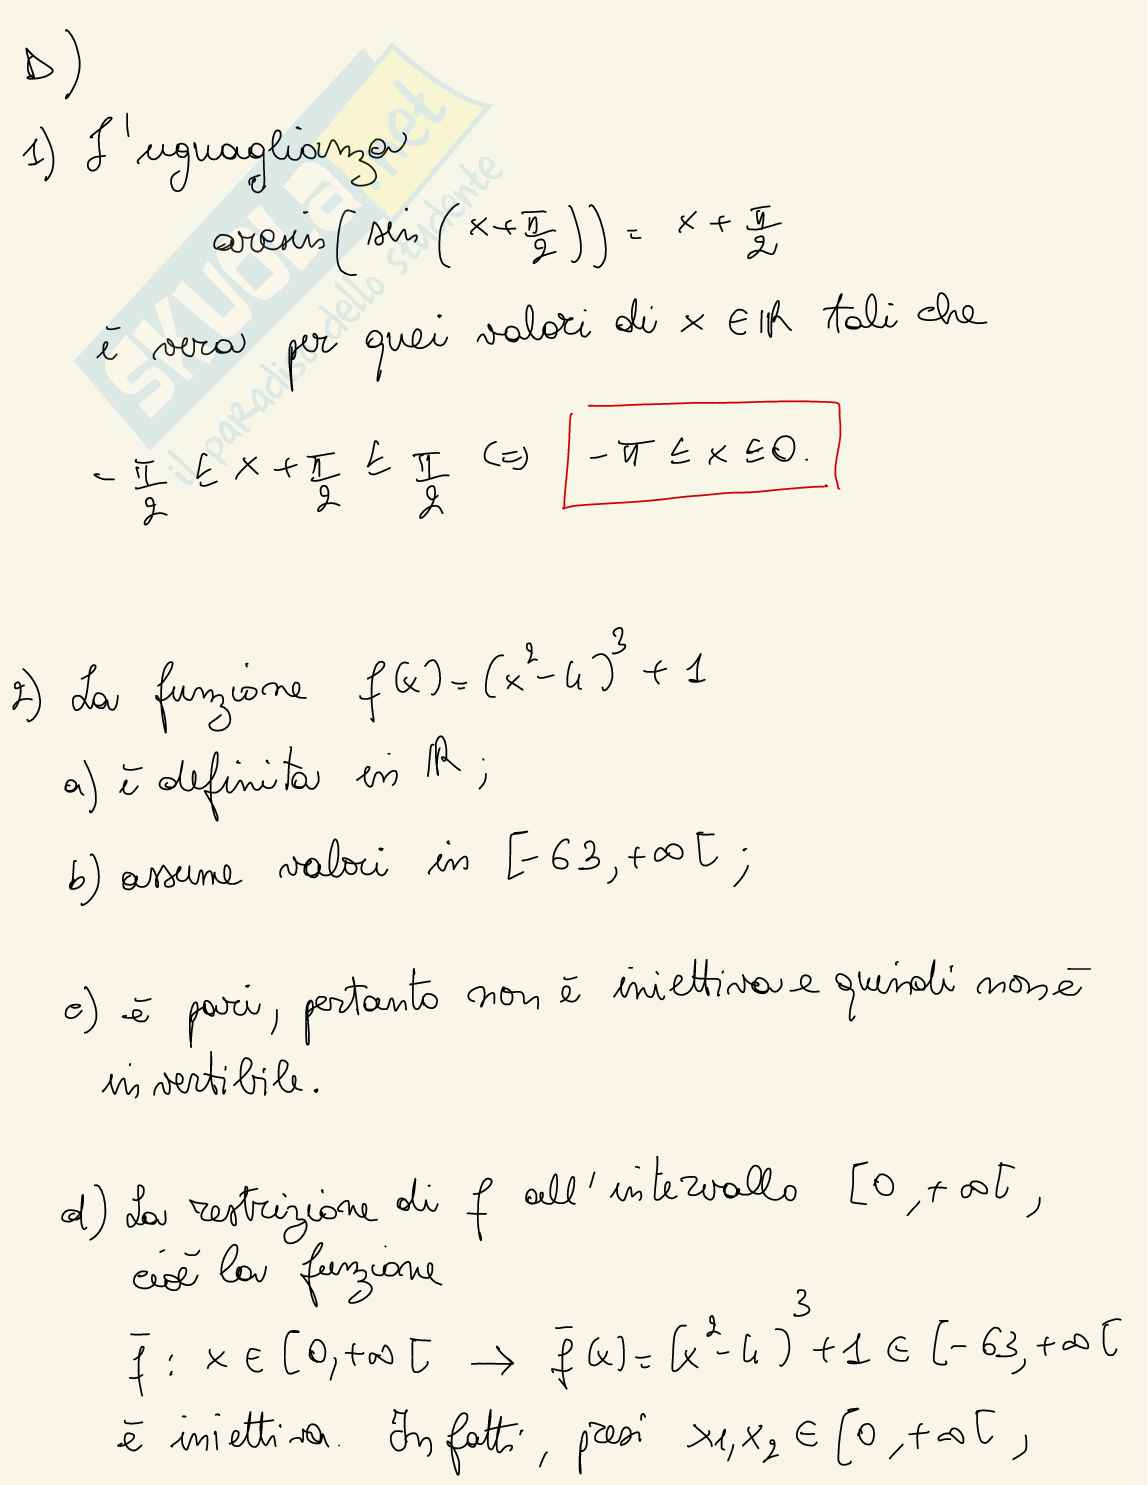 D)
1) L'uguaglianza
arcsin(sin(x+π/2)) = x + π/2
è vera per quei valori di x ∈ ℝ tali che
-π/2 ≤ x + π/2 ≤ π/2 (=) -π ≤ x ≤ 0.
2) La funzione f(x) = (x²-4)³ + 1
a) è definita in ℝ ;
b) assume valori in [-63, +∞[ ;
c) è pari, pertanto non è iniettiva e quindi non è
invertibile.
d) La restrizione di f all'intervallo [0, +∞[ ,
cioè la funzione
f̄ : x ∈ [0, +∞[ → f̄(x) = (x²-4)³ + 1 ∈ [-63, +∞[
è iniettiva. Infatti, presi x1, x2 ∈ [0, +∞[ ,
SKUOLA.net
il paradiso dello studente